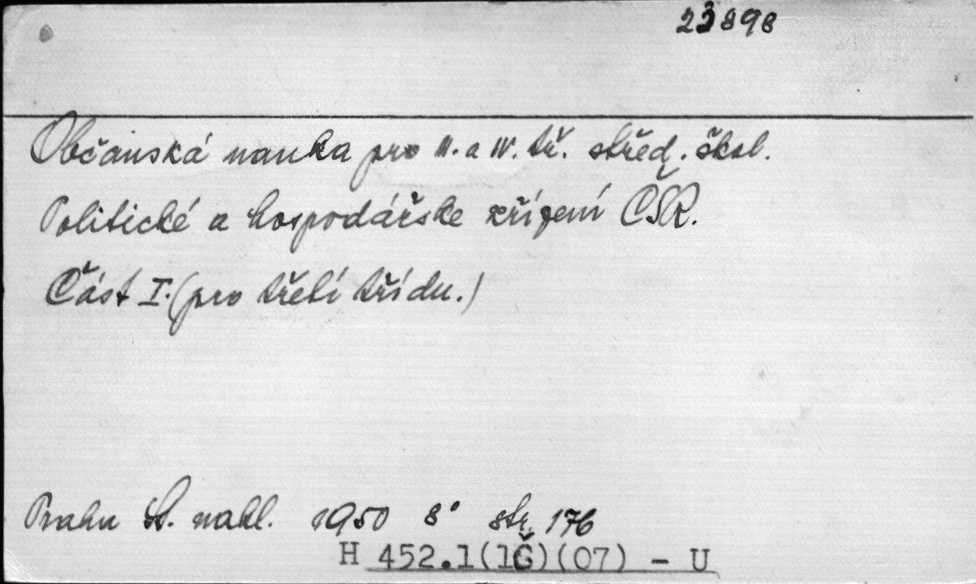 23898
Občanská nauka pro II. a IV. tř. střed. škol.
Politické a hospodářske zřízení ČSR.
Část I. (pro třetí třídu.)
Praha St. nakl. 1950 8° str. 176
H 452.1(1Č)(07) - U